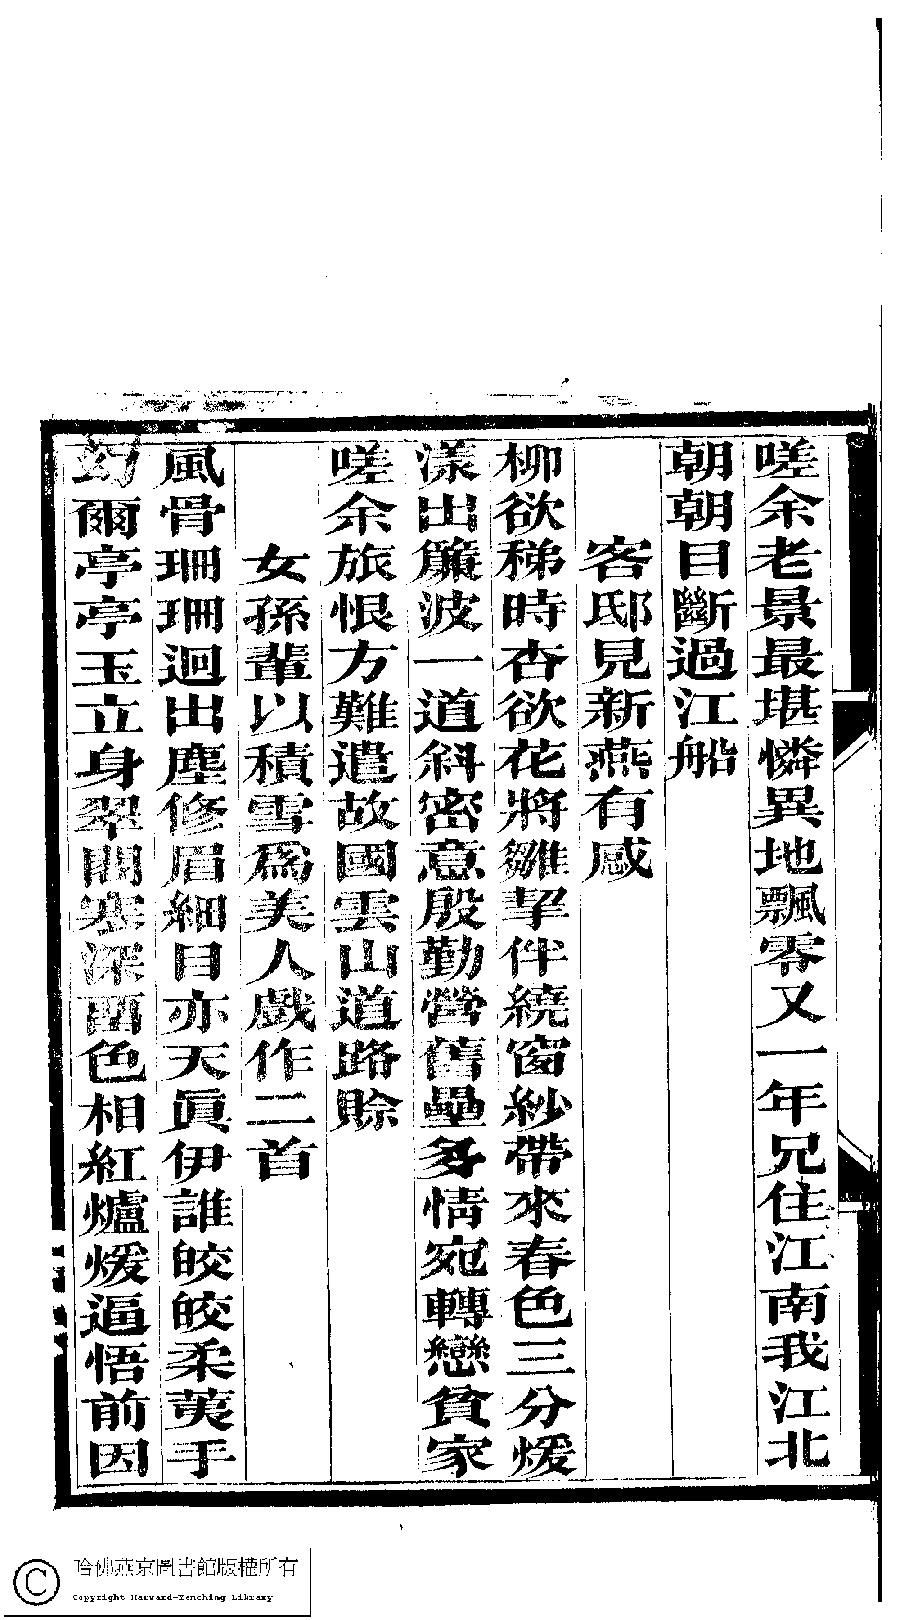 嗟余老景最堪憐異地飄零又一年兄住江南我江北
朝朝目斷過江船
客邸見新燕有感
柳欲稊時杏欲花將雛挈伴繞窗紗帶來春色三分煖
漾出簾波一道斜密意殷勤營舊壘多情宛轉戀貧家
嗟余旅恨方難遣故國雲山道路賒
女孫輩以積雪爲美人戲作二首
風骨珊珊迥出塵修眉細目亦天眞伊誰皎皎柔荑手
幻爾亭亭玉立身翠閣寒深留色相紅爐煖逼悟前因
哈佛燕京圖書館版權所有
Copyright Harvard-Yenching Library